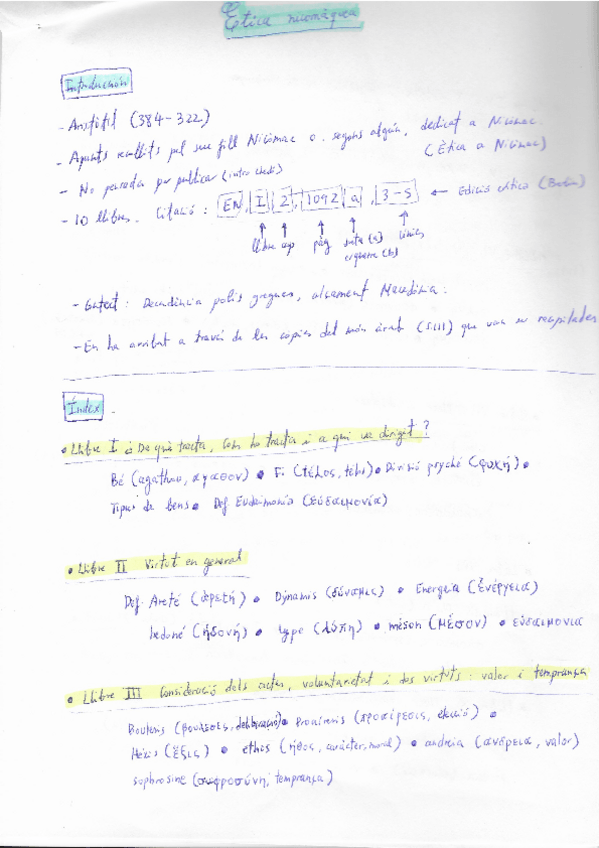 Ètica nicomàquea
Introducción
- Aristòtil (384-322)
- Apunts recollits pel seu fill Nicòmac o, segons algún, dedicat a Nicòmac.
(Ètica a Nicòmac)
- No pensada per publicar
- 10 llibres. Citació: EN, I, 2, 1092, a, 3-5 ← Edició crítica
llibre cap pàg línies
esquerra (b)
Decadència polis gregues, Macedònia.
- Ens ha arribat a través de les còpies del món àrab que van ser recopilades
Índex
• Llibre I De què tracta, com ho tracta i a qui va dirigit?
Bé (agathon, αγαθον) • Fi (τέλος, telos) • Divisió psyché (ψυχή) •
Tipus de bens • Def Eudaimonia (εὐδαιμονία)
• Llibre II Virtut en general
Def. Areté (ἀρετή) • Dýnamis (δύναμις) • Energeia (ἐνέργεια)
hedoné (ἡδονή) • lype (λύπη) • méson (μέσον) • εὐδαιμονια
• Llibre III Consideració dels actes, voluntarietat i dos virtuts: valor i temprança
Bouleusis (βουλεσις, deliberació) • Proairesis (προαίρεσις, elecció) •
Héxis (ἕξις) • ethos (ἦθος, caràcter, moral) • andreia (ανδρεια, valor)
sophrosine (σωφροσύνη, temprança)